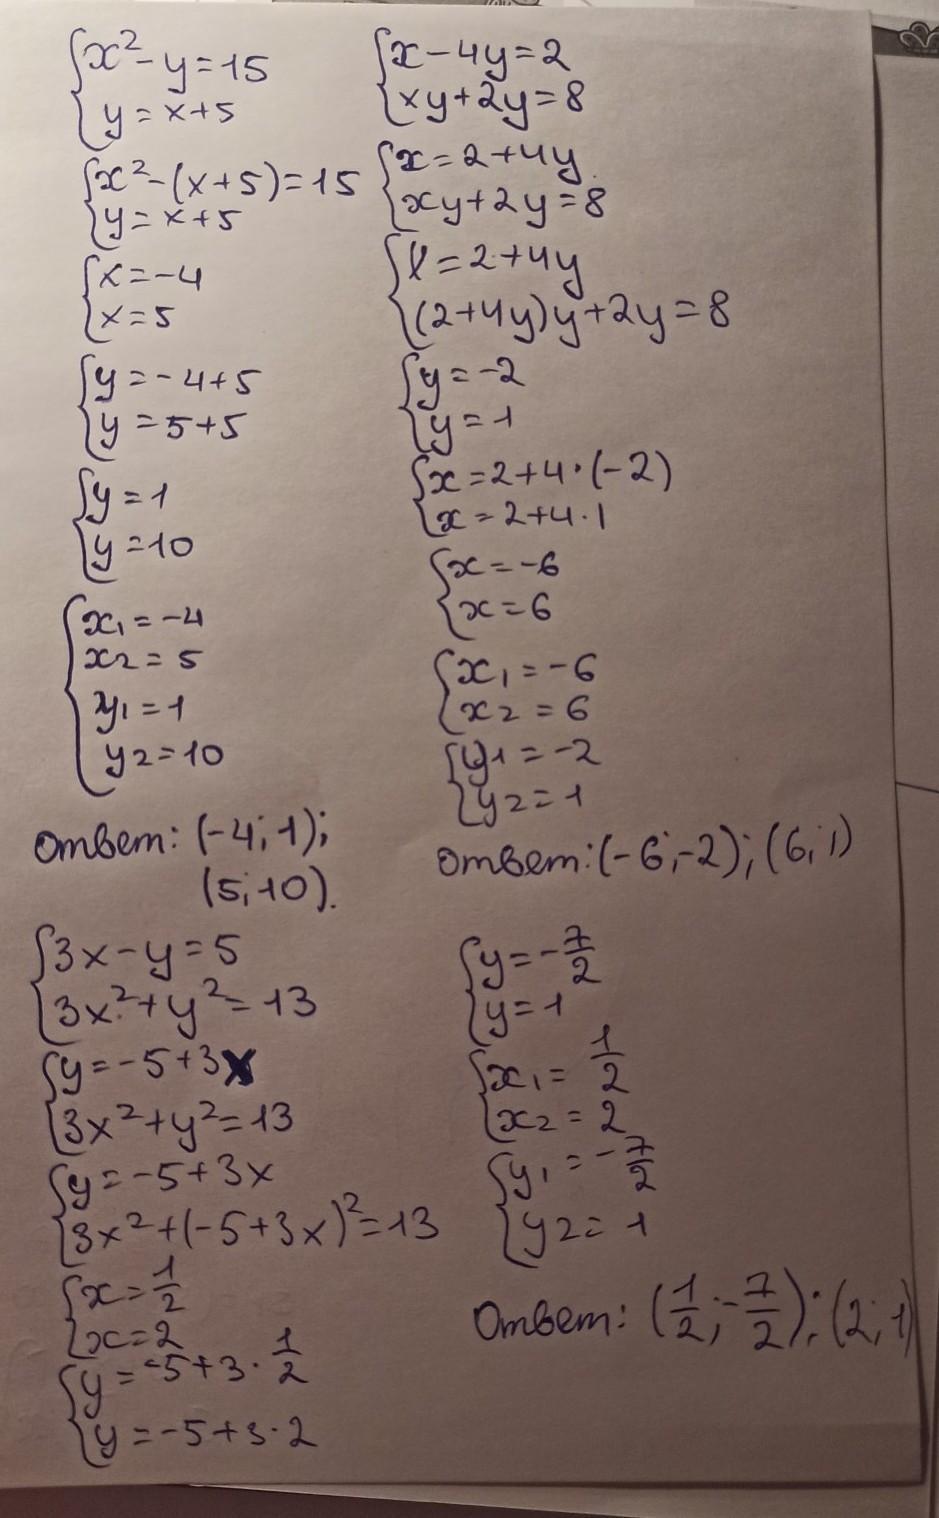 x² - y = 15
y = x + 5
x² - (x + 5) = 15
y = x + 5
x = -4
x = 5
y = -4 + 5
y = 5 + 5
y = 1
y = 10
x₁ = -4
x₂ = 5
y₁ = 1
y₂ = 10
Ответ: (-4; 1);
(5; 10).
x - 4y = 2
xy + 2y = 8
x = 2 + 4y
xy + 2y = 8
x = 2 + 4y
(2 + 4y)y + 2y = 8
y = -2
y = 1
x = 2 + 4 · (-2)
x = 2 + 4 · 1
x = -6
x = 6
x₁ = -6
x₂ = 6
y₁ = -2
y₂ = 1
Ответ: (-6; -2); (6; 1)
3x - y = 5
3x² + y² = 13
y = -5 + 3x
3x² + y² = 13
y = -5 + 3x
3x² + (-5 + 3x)² = 13
x = 1/2
x = 2
y = -5 + 3 · 1/2
y = -5 + 3 · 2
y = -7/2
y = 1
x₁ = 1/2
x₂ = 2
y₁ = -7/2
y₂ = 1
Ответ: (1/2; -7/2); (2; 1)